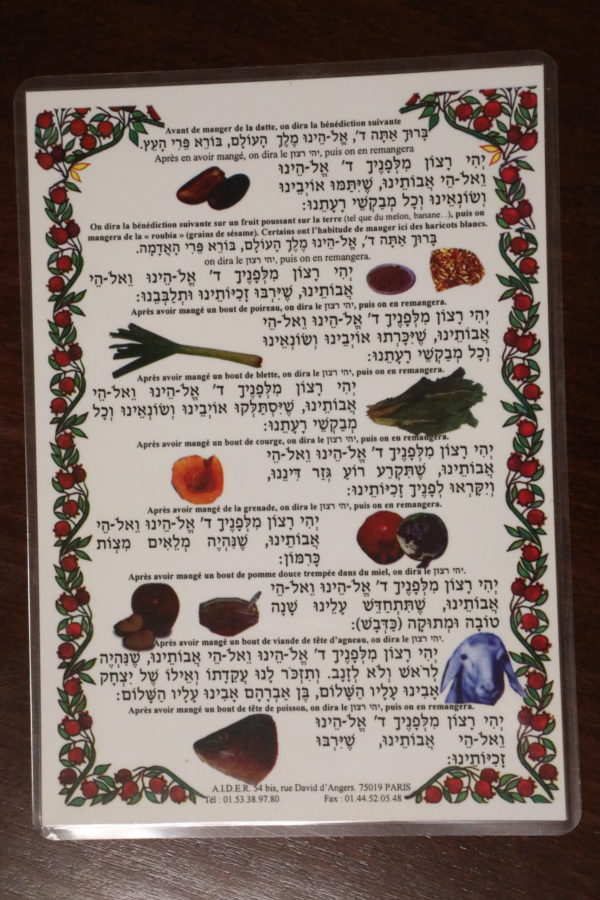 Avant de manger de la datte, on dira la bénédiction suivante
בָּרוּךְ אַתָּה ד', אֱל-הֵינוּ מֶלֶךְ הָעוֹלָם, בּוֹרֵא פְּרִי הָעֵץ.
Après en avoir mangé, on dire le יהי רצון, puis on en remangera
יְהִי רָצוֹן מִלְּפָנֶיךָ ד' אֱל-הֵינוּ
וֵאל-הֵי אֲבוֹתֵינוּ, שֶׁיִּתַּמּוּ אוֹיְבֵינוּ
וְשׂוֹנְאֵינוּ וְכָל מְבַקְשֵׁי רָעָתֵנוּ:
On dira la bénédiction suivante sur un fruit poussant sur la terre (tel que du melon, banane...), puis on
mangera de la « roubia » (grains de sésame). Certains ont l'habitude de manger ici des haricots blancs.
בָּרוּךְ אַתָּה ד', אֱל-הֵינוּ מֶלֶךְ הָעוֹלָם, בּוֹרֵא פְּרִי הָאֲדָמָה.
on dira le יהי רצון, puis on en remangera.
יְהִי רָצוֹן מִלְּפָנֶיךָ ד' אֱל-הֵינוּ וֵאל-הֵי
אֲבוֹתֵינוּ, שֶׁיִּרְבּוּ זָכִיּוֹתֵינוּ וּתְלַבְּבֵנוּ:
Après avoir mangé un bout de poireau, on dira le יהי רצון, puis on en remangera.
יְהִי רָצוֹן מִלְּפָנֶיךָ ד' אֱל-הֵינוּ וֵאל-הֵי
אֲבוֹתֵינוּ, שֶׁיִּכָּרְתוּ אוֹיְבֵינוּ וְשׂוֹנְאֵינוּ
וְכָל מְבַקְשֵׁי רָעָתֵנוּ:
Après avoir mangé un bout de blette, on dira le יהי רצון, puis on en remangera.
יְהִי רָצוֹן מִלְּפָנֶיךָ ד' אֱל-הֵינוּ וֵאל-הֵי
אֲבוֹתֵינוּ, שֶׁיִּסְתַּלְּקוּ אוֹיְבֵינוּ וְשׂוֹנְאֵינוּ וְכָל
מְבַקְשֵׁי רָעָתֵנוּ:
Après avoir mangé un bout de courge, on dira le יהי רצון, puis on en remangera.
יְהִי רָצוֹן מִלְּפָנֶיךָ ד' אֱל-הֵינוּ וֵאל-הֵי
אֲבוֹתֵינוּ, שֶׁתִּקְרַע רוֹעַ גְּזַר דִּינֵנוּ,
וְיִקָּרְאוּ לְפָנֶיךָ זָכִיּוֹתֵינוּ:
Après avoir mangé de la grenade, on dira le יהי רצון, puis on en remangera.
יְהִי רָצוֹן מִלְּפָנֶיךָ ד' אֱל-הֵינוּ וֵאל-הֵי
אֲבוֹתֵינוּ, שֶׁנִּהְיֶה מְלֵאִים מִצְוֹת
כָּרִמּוֹן:
Après avoir mangé un bout de pomme douce trempée dans du miel, on dira le יהי רצון.
יְהִי רָצוֹן מִלְּפָנֶיךָ ד' אֱל-הֵינוּ וֵאל-הֵי
אֲבוֹתֵינוּ, שֶׁתִּתְחַדֵּשׁ עָלֵינוּ שָׁנָה
טוֹבָה וּמְתוּקָה (כַּדְּבָשׁ):
Après avoir mangé un bout de viande de tête d'agneau, on dira le יהי רצון.
יְהִי רָצוֹן מִלְּפָנֶיךָ ד' אֱל-הֵינוּ וֵאל-הֵי אֲבוֹתֵינוּ, שֶׁנִּהְיֶה
לְרֹאשׁ וְלֹא לְזָנָב. וְתִזְכֹּר לָנוּ עֲקֵדָתוֹ וְאֵילוֹ שֶׁל יִצְחָק
אָבִינוּ עָלָיו הַשָּׁלוֹם, בֶּן אַבְרָהָם אָבִינוּ עָלָיו הַשָּׁלוֹם:
Après avoir mangé un bout de tête de poisson, on dira le יהי רצון, puis on en remangera.
יְהִי רָצוֹן מִלְּפָנֶיךָ ד' אֱל-הֵינוּ
וֵאל-הֵי אֲבוֹתֵינוּ, שֶׁיִּרְבּוּ
זָכִיּוֹתֵינוּ:
A.I.D.E.R. 54 bis, rue David d'Angers. 75019 PARIS
Tél : 01.53.38.97.80 Fax : 01.44.52.05.48